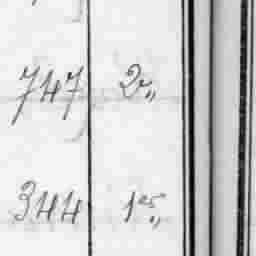 747 2 "
344 1 25 "